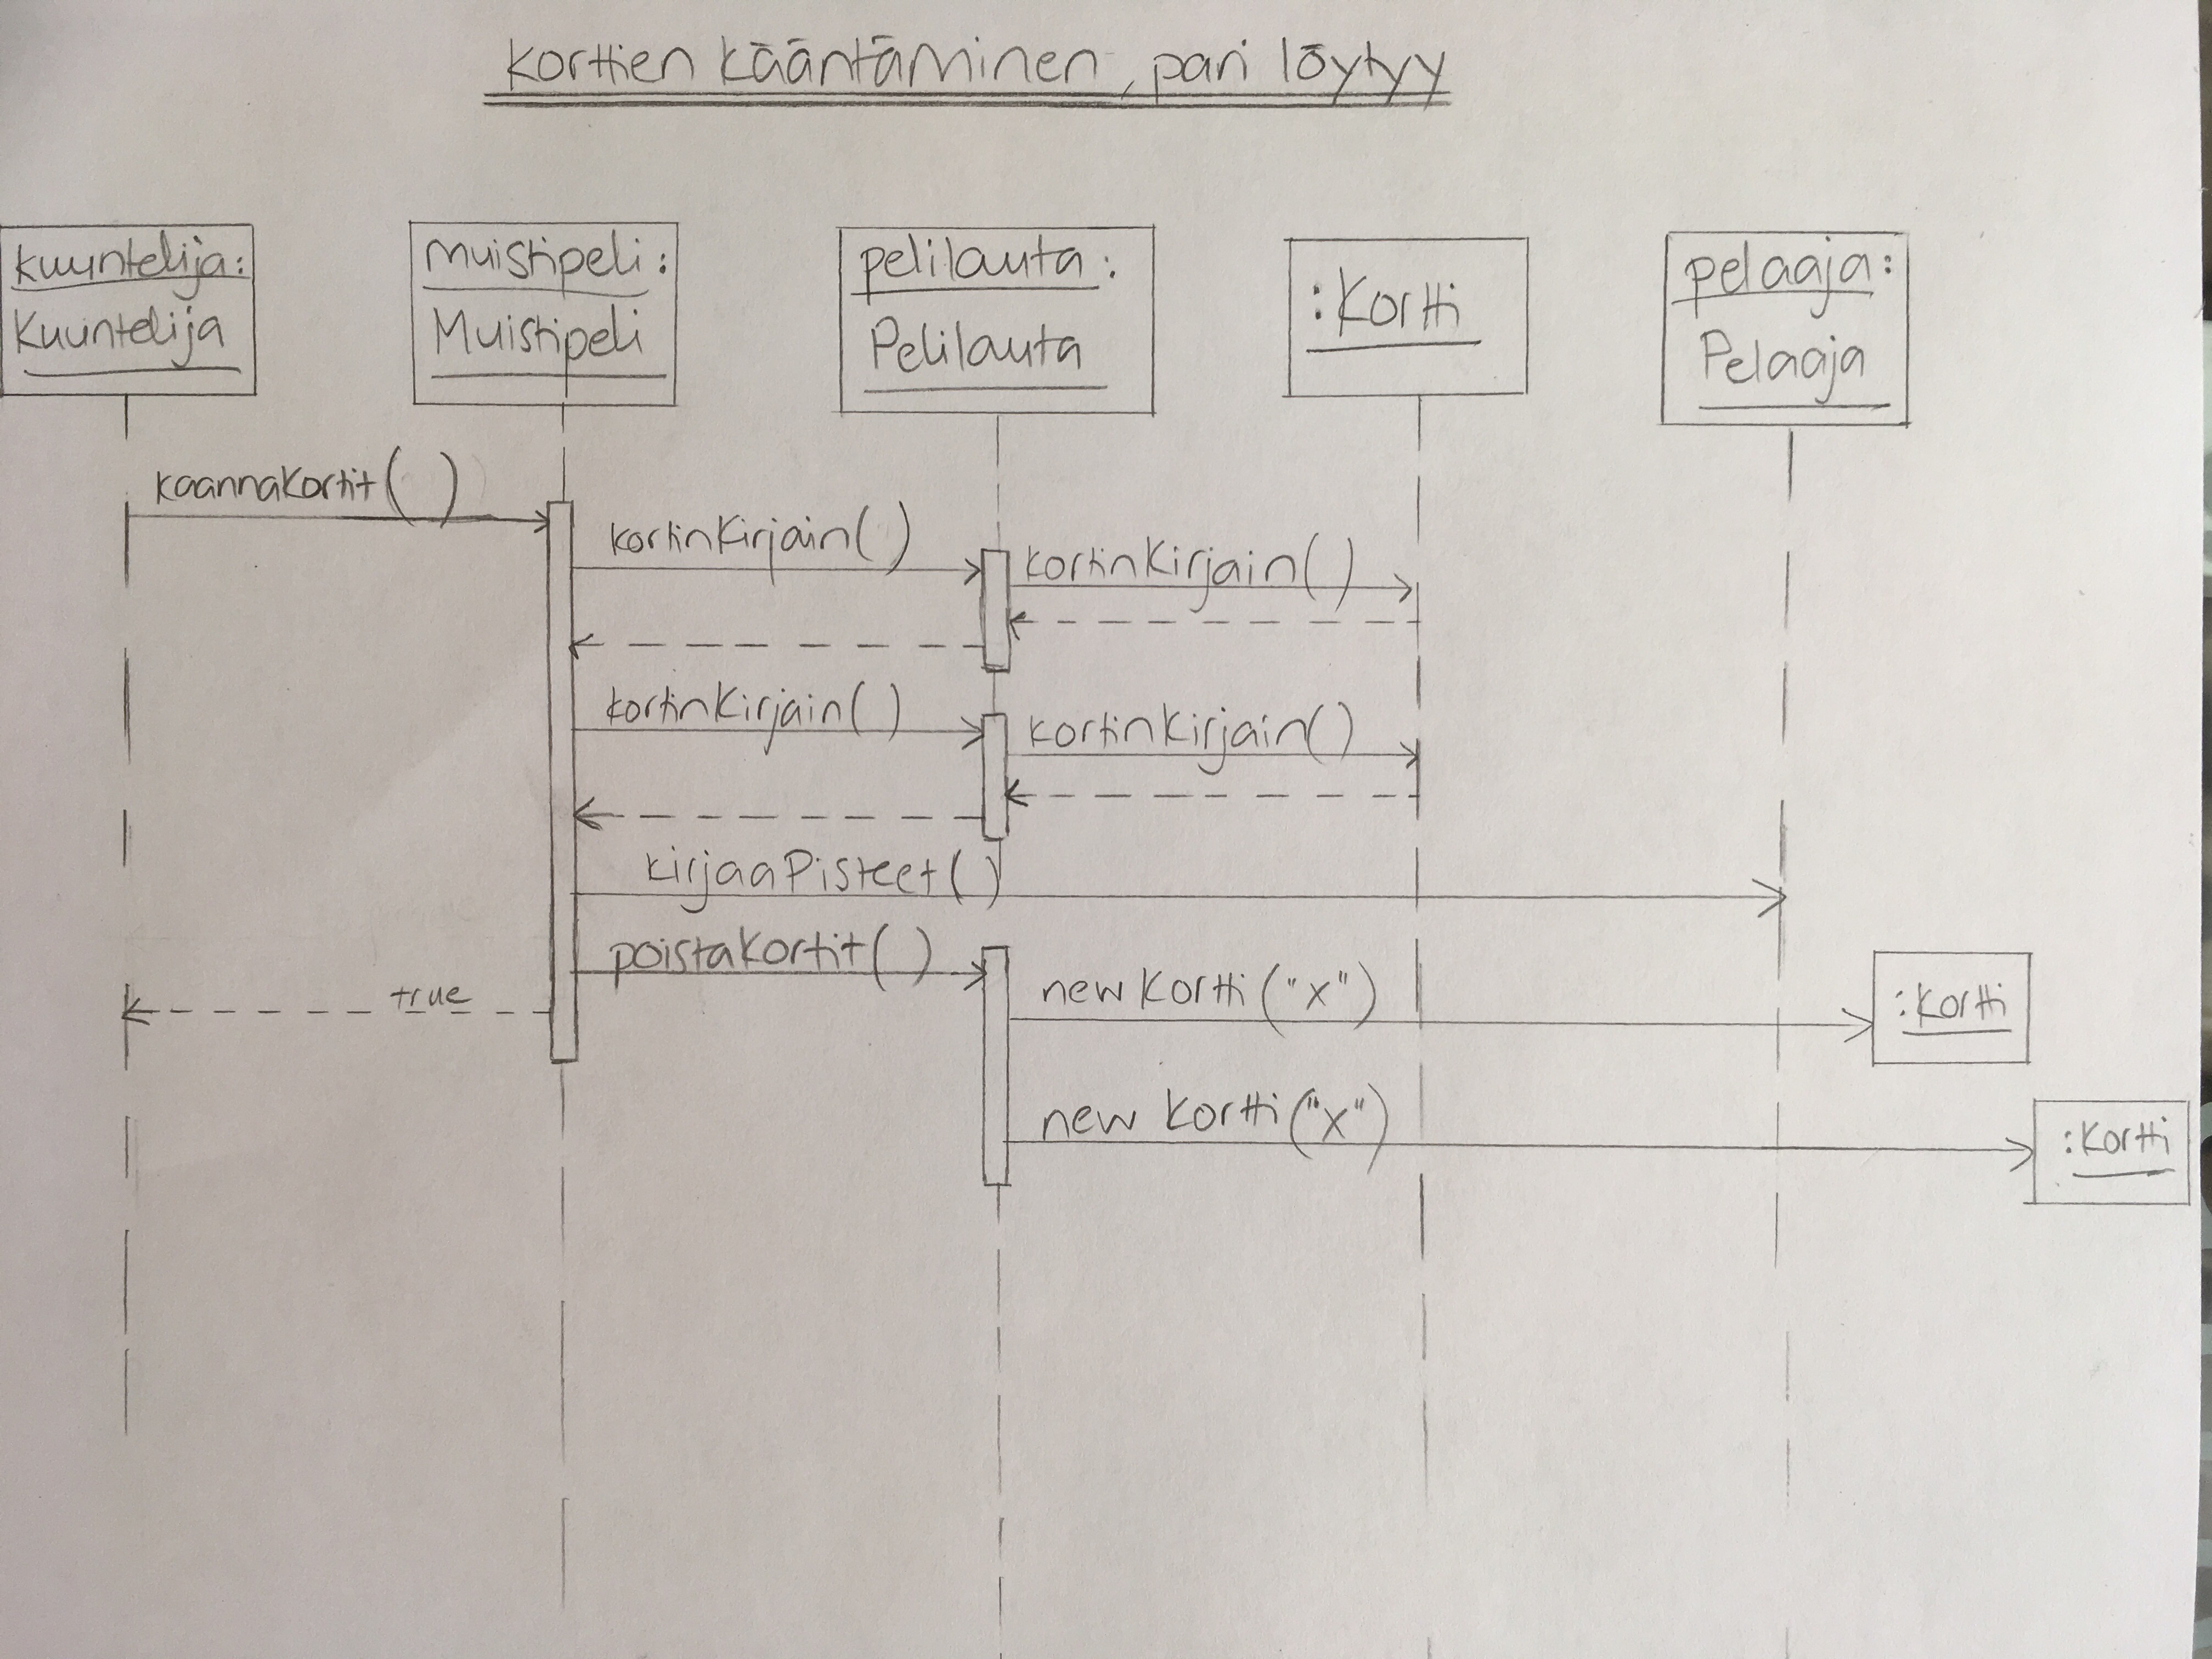 korttien kääntäminen, pari löytyy
kuuntelija:
Kuuntelija
muistipeli:
Muistipeli
pelilauta:
Pelilauta
:Kortti
pelaaja:
Pelaaja
kaannaKortit( )
kortinKirjain( )
kortinKirjain( )
kortinKirjain( )
kortinKirjain( )
kirjaaPisteet( )
poistaKortit( )
true
new Kortti ("x")
:Kortti
new Kortti ("x")
:Kortti